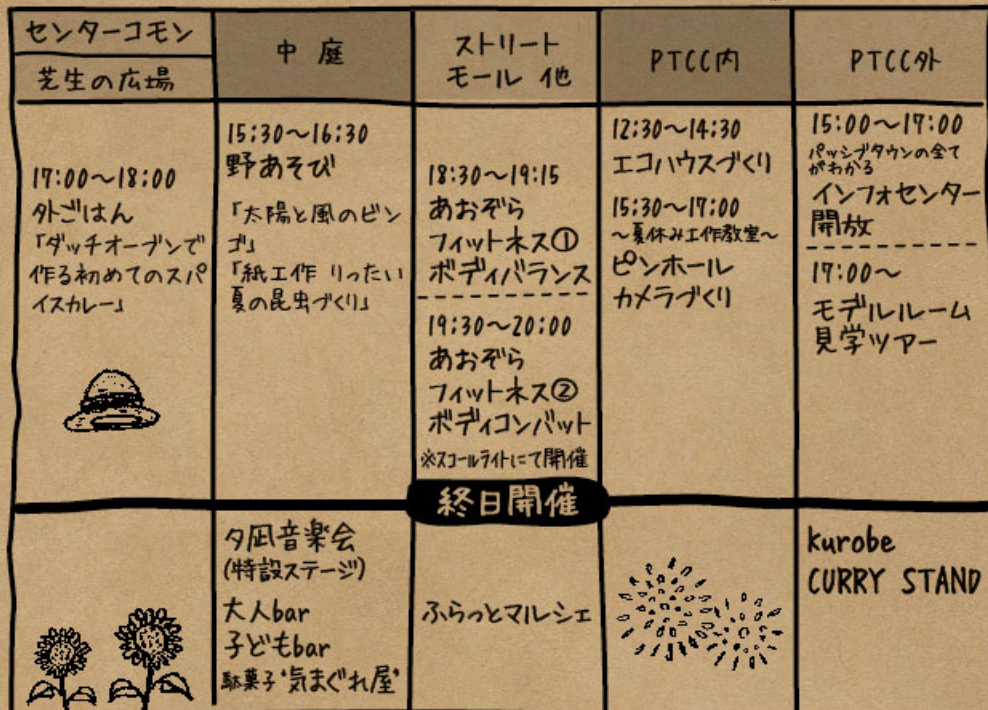 センターコモン
芝生の広場
中庭
ストリート
モール 他
PTCC内
PTCC外
17:00〜18:00
外ごはん
「ダッチオーブンで
作る初めてのスパ
イスカレー」
15:30〜16:30
野あそび
「太陽と風のビン
ゴ」
「紙工作 りったい
夏の昆虫づくり」
18:30〜19:15
あおぞら
フィットネス①
ボディバランス
19:30〜20:00
あおぞら
フィットネス②
ボディコンバット
※スコールライトにて開催
12:30〜14:30
エコハウスづくり
15:30〜17:00
〜夏休み工作教室〜
ピンホール
カメラづくり
15:00〜17:00
パッシブタウンの全て
がわかる
インフォセンター
開放
17:00〜
モデルルーム
見学ツアー
終日開催
夕凪音楽会
(特設ステージ)
大人bar
子どもbar
駄菓子‘気まぐれ屋’
ふらっとマルシェ
kurobe
CURRY STAND